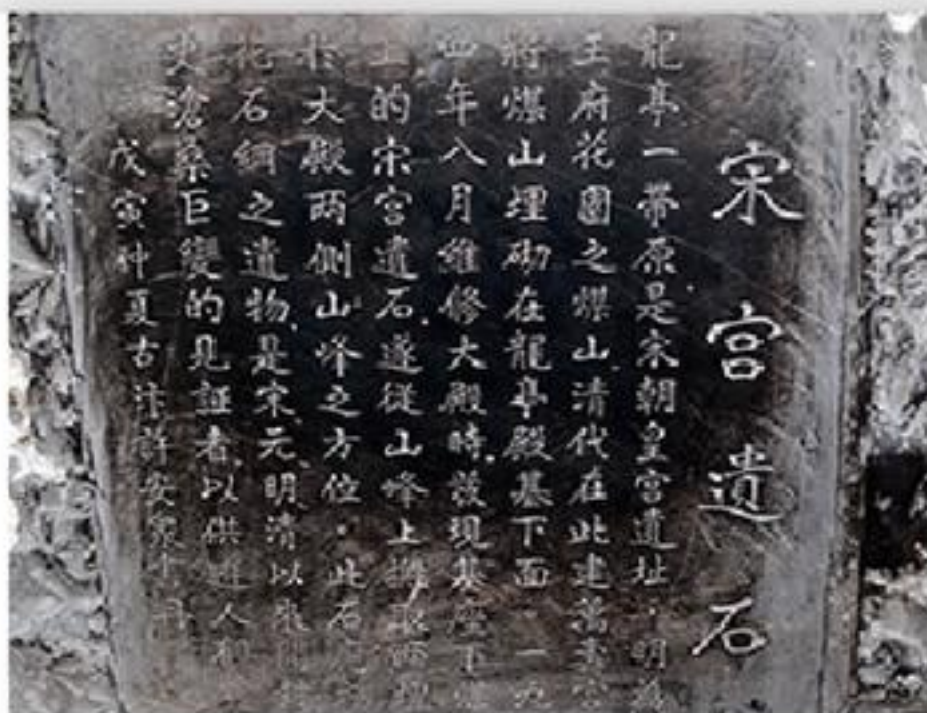 宋宮遺石
龍亭一帶原是宋朝皇宮遺址．明為
王府花園之煤山清代在此建萬壽宮
將煤山埋砌在龍亭殿基下面．一九
四年八月維修大殿時．發現基座下
上的宋宮遺石．遂從山峰上
於大殿兩側山峰之方位．此石
花石綱之遺物．是宋．元．明．清以來
史滄桑巨變的見証者．以供遊人
戊寅仲夏古汴許安